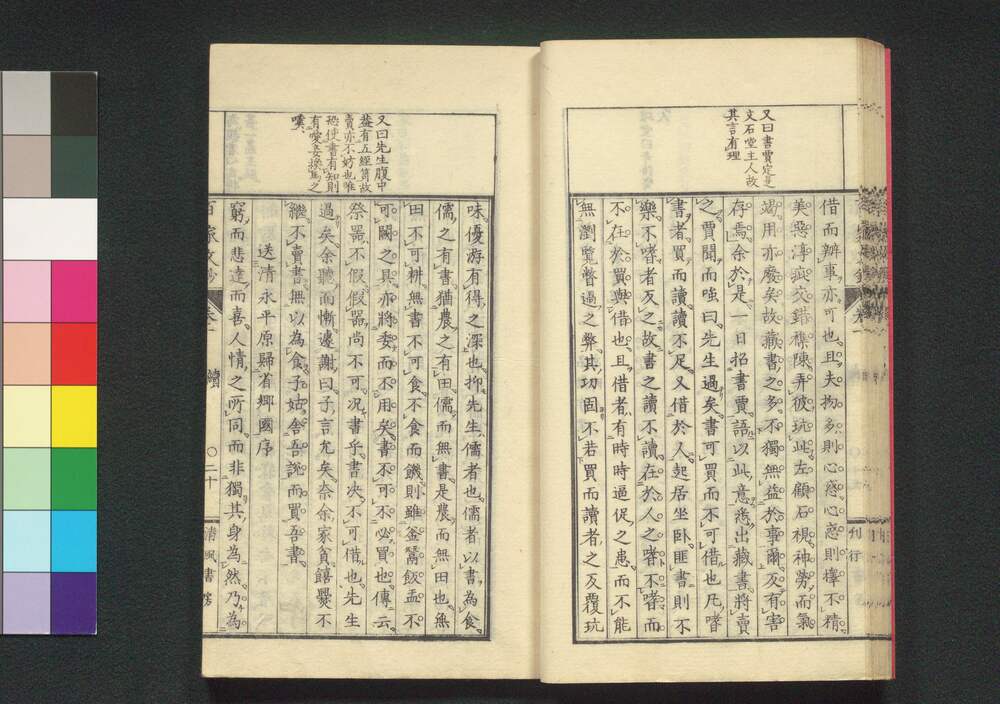 又曰書賈定是
文石堂主人故
其言有理
借而辨事亦可也且夫物多則心惑心惑則擇不精
美惡淳疵交錯襍陳弄彼玩此左顧右視神勞而氣
竭用亦廢矣故藏書之多不獨無益於事爾反有害
存焉余於是一日招書賈語以此意悉出藏書將賣
之賈聞而嗤曰先生過矣書可買而不可借也凡嗜
書者買而讀讀不足又借於人起居坐臥匪書則不
樂不嗜者反之故書之讀不讀在於人之嗜不嗜而
不在於買與借也且借者有時時逼促之患而不能
無瀏覽瞥過之弊其功固不若買而讀者之反覆玩
刊行
又曰先生腹中
葢有五經笥故
賣亦不妨也唯
恐使書有知則
有愛妾換馬之
嘆
味優游有得之深也抑先生儒者也儒者以書為食
儒之有書猶農之有田儒而無書是農而無田也無
田不可耕無書不可食不食而饑則雖釜鬵飯盂不
可闕之具亦將委而不用矣書不可不必買也傳云
祭器不假假器尚不可况書乎書决不可借也先生
過矣余聽而慚遽謝曰子言尤矣奈余家貧饎爨不
繼不賣書無以為食子姑舍吾說而買吾書
送清永平原歸省鄉國序
窮而悲達而喜人情之所同而非獨其身為然乃為
百家文鈔 卷一 續 〇二十 清風書房